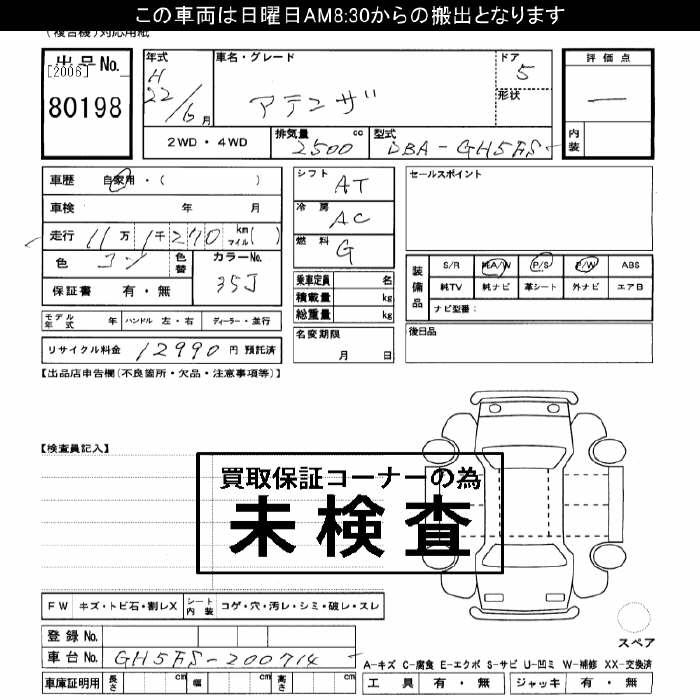 この車両は日曜日AM8:30からの搬出となります
(複合機)対応用紙
出品No.
[2006]
80198
年式
H
22/6月
車名・グレード
アテンザ
ドア
5
形状
評価点
—
内装
2WD・4WD
排気量 cc
2500
型式
DBA-GH5FS
車歴 自家用・( )
車検 年 月
走行 11万1千270 km マイル( )
色 コン
色替
カラーNo.
35J
保証書 有・無
モデル年式 年 ハンドル 左・右 ディーラー・並行
リサイクル料金 12990 円 預託済
シフト AT
冷房 AC
燃料 G
乗車定員 名
積載量 kg
総重量 kg
名変期限
月 日
セールスポイント
装備品
S/R 純A/W P/S P/W ABS
純TV 純ナビ 革シート 外ナビ エアB
ナビ型番:
後日品
【出品店申告欄(不良箇所・欠品・注意事項等)】
【検査員記入】
買取保証コーナーの為
未検査
FW キズ・トビ石・割レX シート内装 コゲ・穴・汚レ・シミ・破レ・スレ
スペア
登録No.
車台No. GH5FS-200714
車庫証明用 長さ cm 幅 cm 高さ cm
A-キズ C-腐食 E-エクボ S-サビ U-凹ミ W-補修 XX-交換済
工具 有・無 ジャッキ 有・無